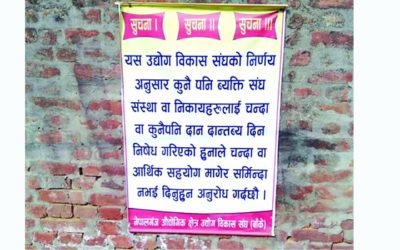 सुचना । सुचना ॥ सुचना !!!
यस उद्योग विकास संघको निर्णय
अनुसार कुनै पनि ब्यक्ति संघ
संस्था वा निकायहरुलाई चन्दा
वा कुनैपनि दान दान्तब्य दिन
निषेध गरिएको हुनाले चन्दा वा
आर्थिक सहयोग मागेर सर्मिन्दा
नभई दिनुहुन अनुरोध गर्दछौ ।
नेपालगंज औद्योगिक क्षेत्र उद्योग विकास संघ (बाँके)